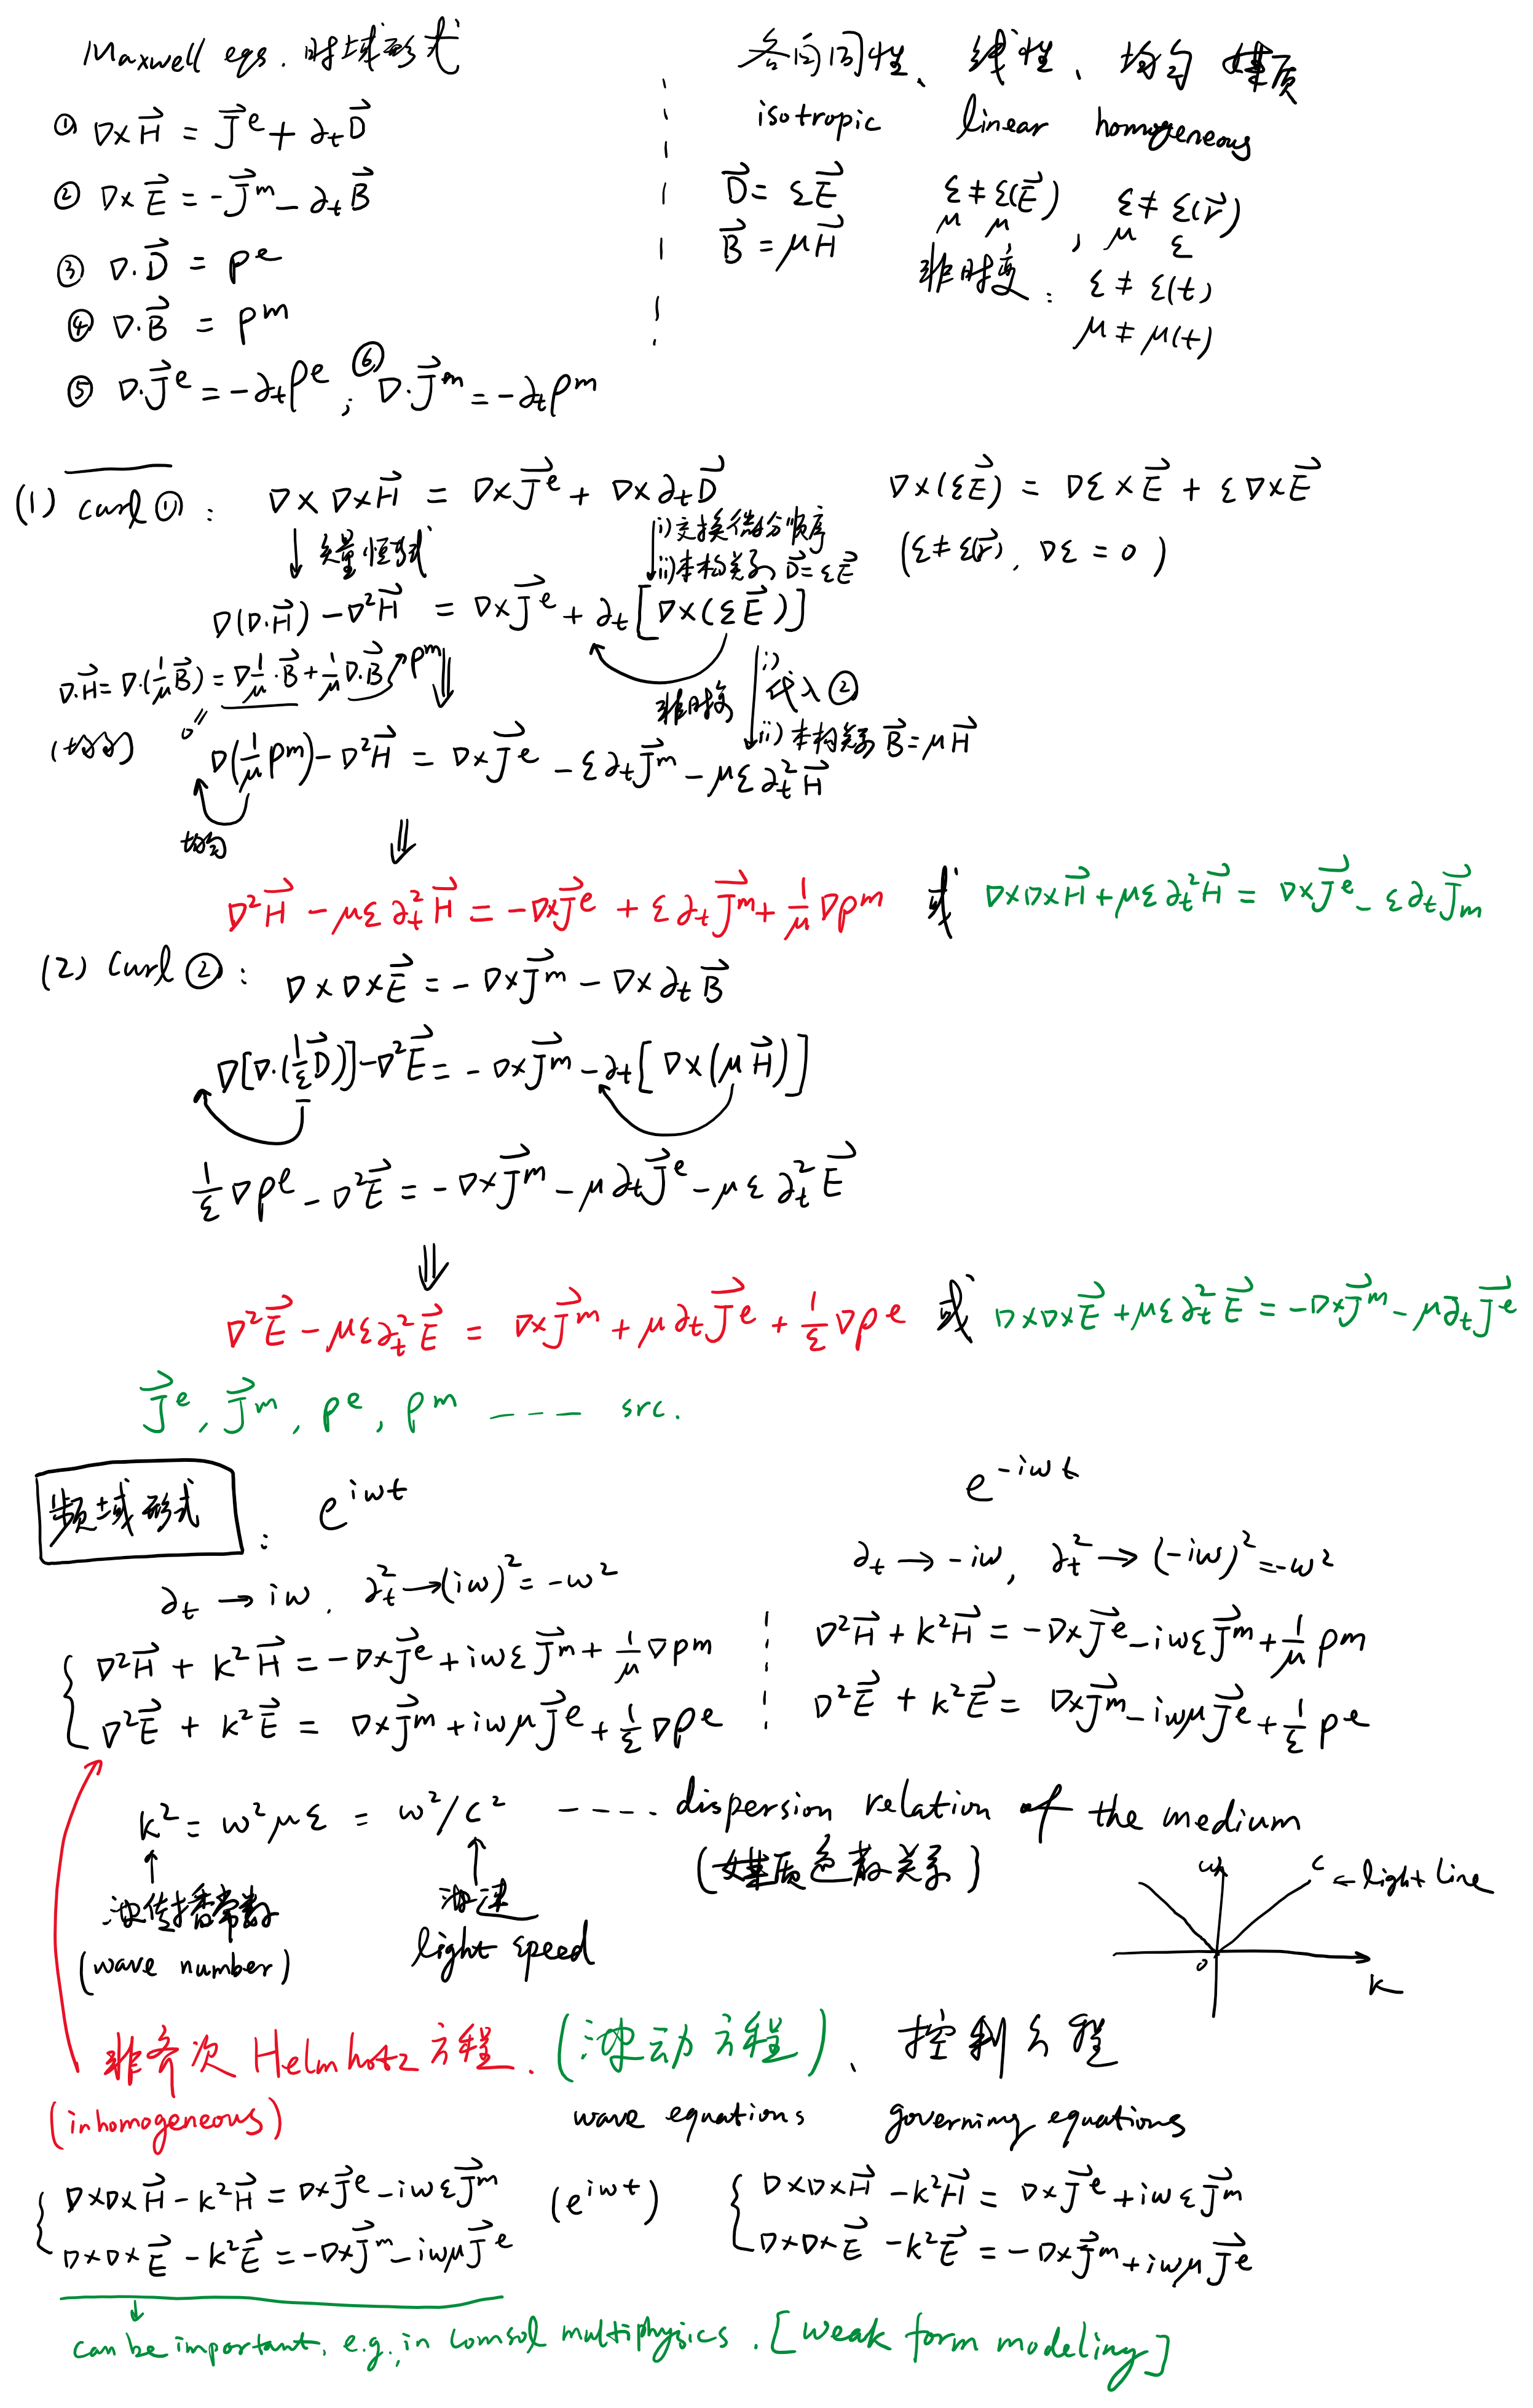 Maxwell eqs. 时域形式
① ∇×H⃗ = J⃗ᵉ + ∂ₜD⃗
② ∇×E⃗ = -J⃗ᵐ - ∂ₜB⃗
③ ∇·D⃗ = ρᵉ
④ ∇·B⃗ = ρᵐ
⑤ ∇·J⃗ᵉ = -∂ₜρᵉ ; ⑥ ∇·J⃗ᵐ = -∂ₜρᵐ
各向同性、线性、均匀 媒质
isotropic linear homogeneous
D⃗ = εE⃗ ε ≠ ε(E⃗) , ε ≠ ε(r⃗)
B⃗ = μH⃗ μ μ μ ε
非时变: ε ≠ ε(t)
μ ≠ μ(t)
(1) curl ①: ∇×∇×H⃗ = ∇×J⃗ᵉ + ∇×∂ₜD⃗ ∇×(εE⃗) = ∇ε×E⃗ + ε∇×E⃗
↓ 矢量恒等式 i) 交换微分顺序
ii) 本构关系 D⃗ = εE⃗ (ε ≠ ε(r⃗), ∇ε = 0)
∇(∇·H⃗) - ∇²H⃗ = ∇×J⃗ᵉ + ∂ₜ[∇×(εE⃗)]
∇·H⃗ = ∇·(1/μ B⃗) = ∇1/μ·B⃗ + 1/μ ∇·B⃗ ρᵐ ⇓ 非时变 i) 代入②
(均匀) 0 ii) 本构关系 B⃗ = μH⃗
∇(1/μ ρᵐ) - ∇²H⃗ = ∇×J⃗ᵉ - ε∂ₜJ⃗ᵐ - με∂ₜ²H⃗
均匀 ⇓
∇²H⃗ - με∂ₜ²H⃗ = -∇×J⃗ᵉ + ε∂ₜJ⃗ᵐ + 1/μ ∇ρᵐ 或 ∇×∇×H⃗ + με∂ₜ²H⃗ = ∇×J⃗ᵉ - ε∂ₜJ⃗ₘ
(2) Curl ②: ∇×∇×E⃗ = -∇×J⃗ᵐ - ∇×∂ₜB⃗
∇[∇·(1/ε D⃗)] - ∇²E⃗ = -∇×J⃗ᵐ - ∂ₜ[∇×(μH⃗)]
1/ε ∇ρᵉ - ∇²E⃗ = -∇×J⃗ᵐ - μ∂ₜJ⃗ᵉ - με∂ₜ²E⃗
⇓
∇²E⃗ - με∂ₜ²E⃗ = ∇×J⃗ᵐ + μ∂ₜJ⃗ᵉ + 1/ε ∇ρᵉ 或 ∇×∇×E⃗ + με∂ₜ²E⃗ = -∇×J⃗ᵐ - μ∂ₜJ⃗ᵉ
J⃗ᵉ, J⃗ᵐ, ρᵉ, ρᵐ ---- src.
频域形式: e^{iωt}
∂ₜ → iω, ∂ₜ² → (iω)² = -ω²
∇²H⃗ + k²H⃗ = -∇×J⃗ᵉ + iωεJ⃗ᵐ + 1/μ ∇ρᵐ
∇²E⃗ + k²E⃗ = ∇×J⃗ᵐ + iωμJ⃗ᵉ + 1/ε ∇ρᵉ
e^{-iωt}
∂ₜ → -iω, ∂ₜ² → (-iω)² = -ω²
∇²H⃗ + k²H⃗ = -∇×J⃗ᵉ - iωεJ⃗ᵐ + 1/μ ρᵐ
∇²E⃗ + k²E⃗ = ∇×J⃗ᵐ - iωμJ⃗ᵉ + 1/ε ρᵉ
k² = ω²με = ω²/c² ---- dispersion relation of the medium
(媒质色散关系)
波传播常数 波速
(wave number) light speed
ω c ← light line
0 k
非齐次 Helmhotz 方程. (波动方程)、控制方程
(inhomogeneous) wave equations governing equations
∇×∇×H⃗ - k²H⃗ = ∇×J⃗ᵉ - iωεJ⃗ᵐ (e^{iωt}) ∇×∇×H⃗ - k²H⃗ = ∇×J⃗ᵉ + iωεJ⃗ᵐ
∇×∇×E⃗ - k²E⃗ = -∇×J⃗ᵐ - iωμJ⃗ᵉ ∇×∇×E⃗ - k²E⃗ = -∇×J⃗ᵐ + iωμJ⃗ᵉ
can be important, e.g., in Comsol multiphysics. [weak form modeling]